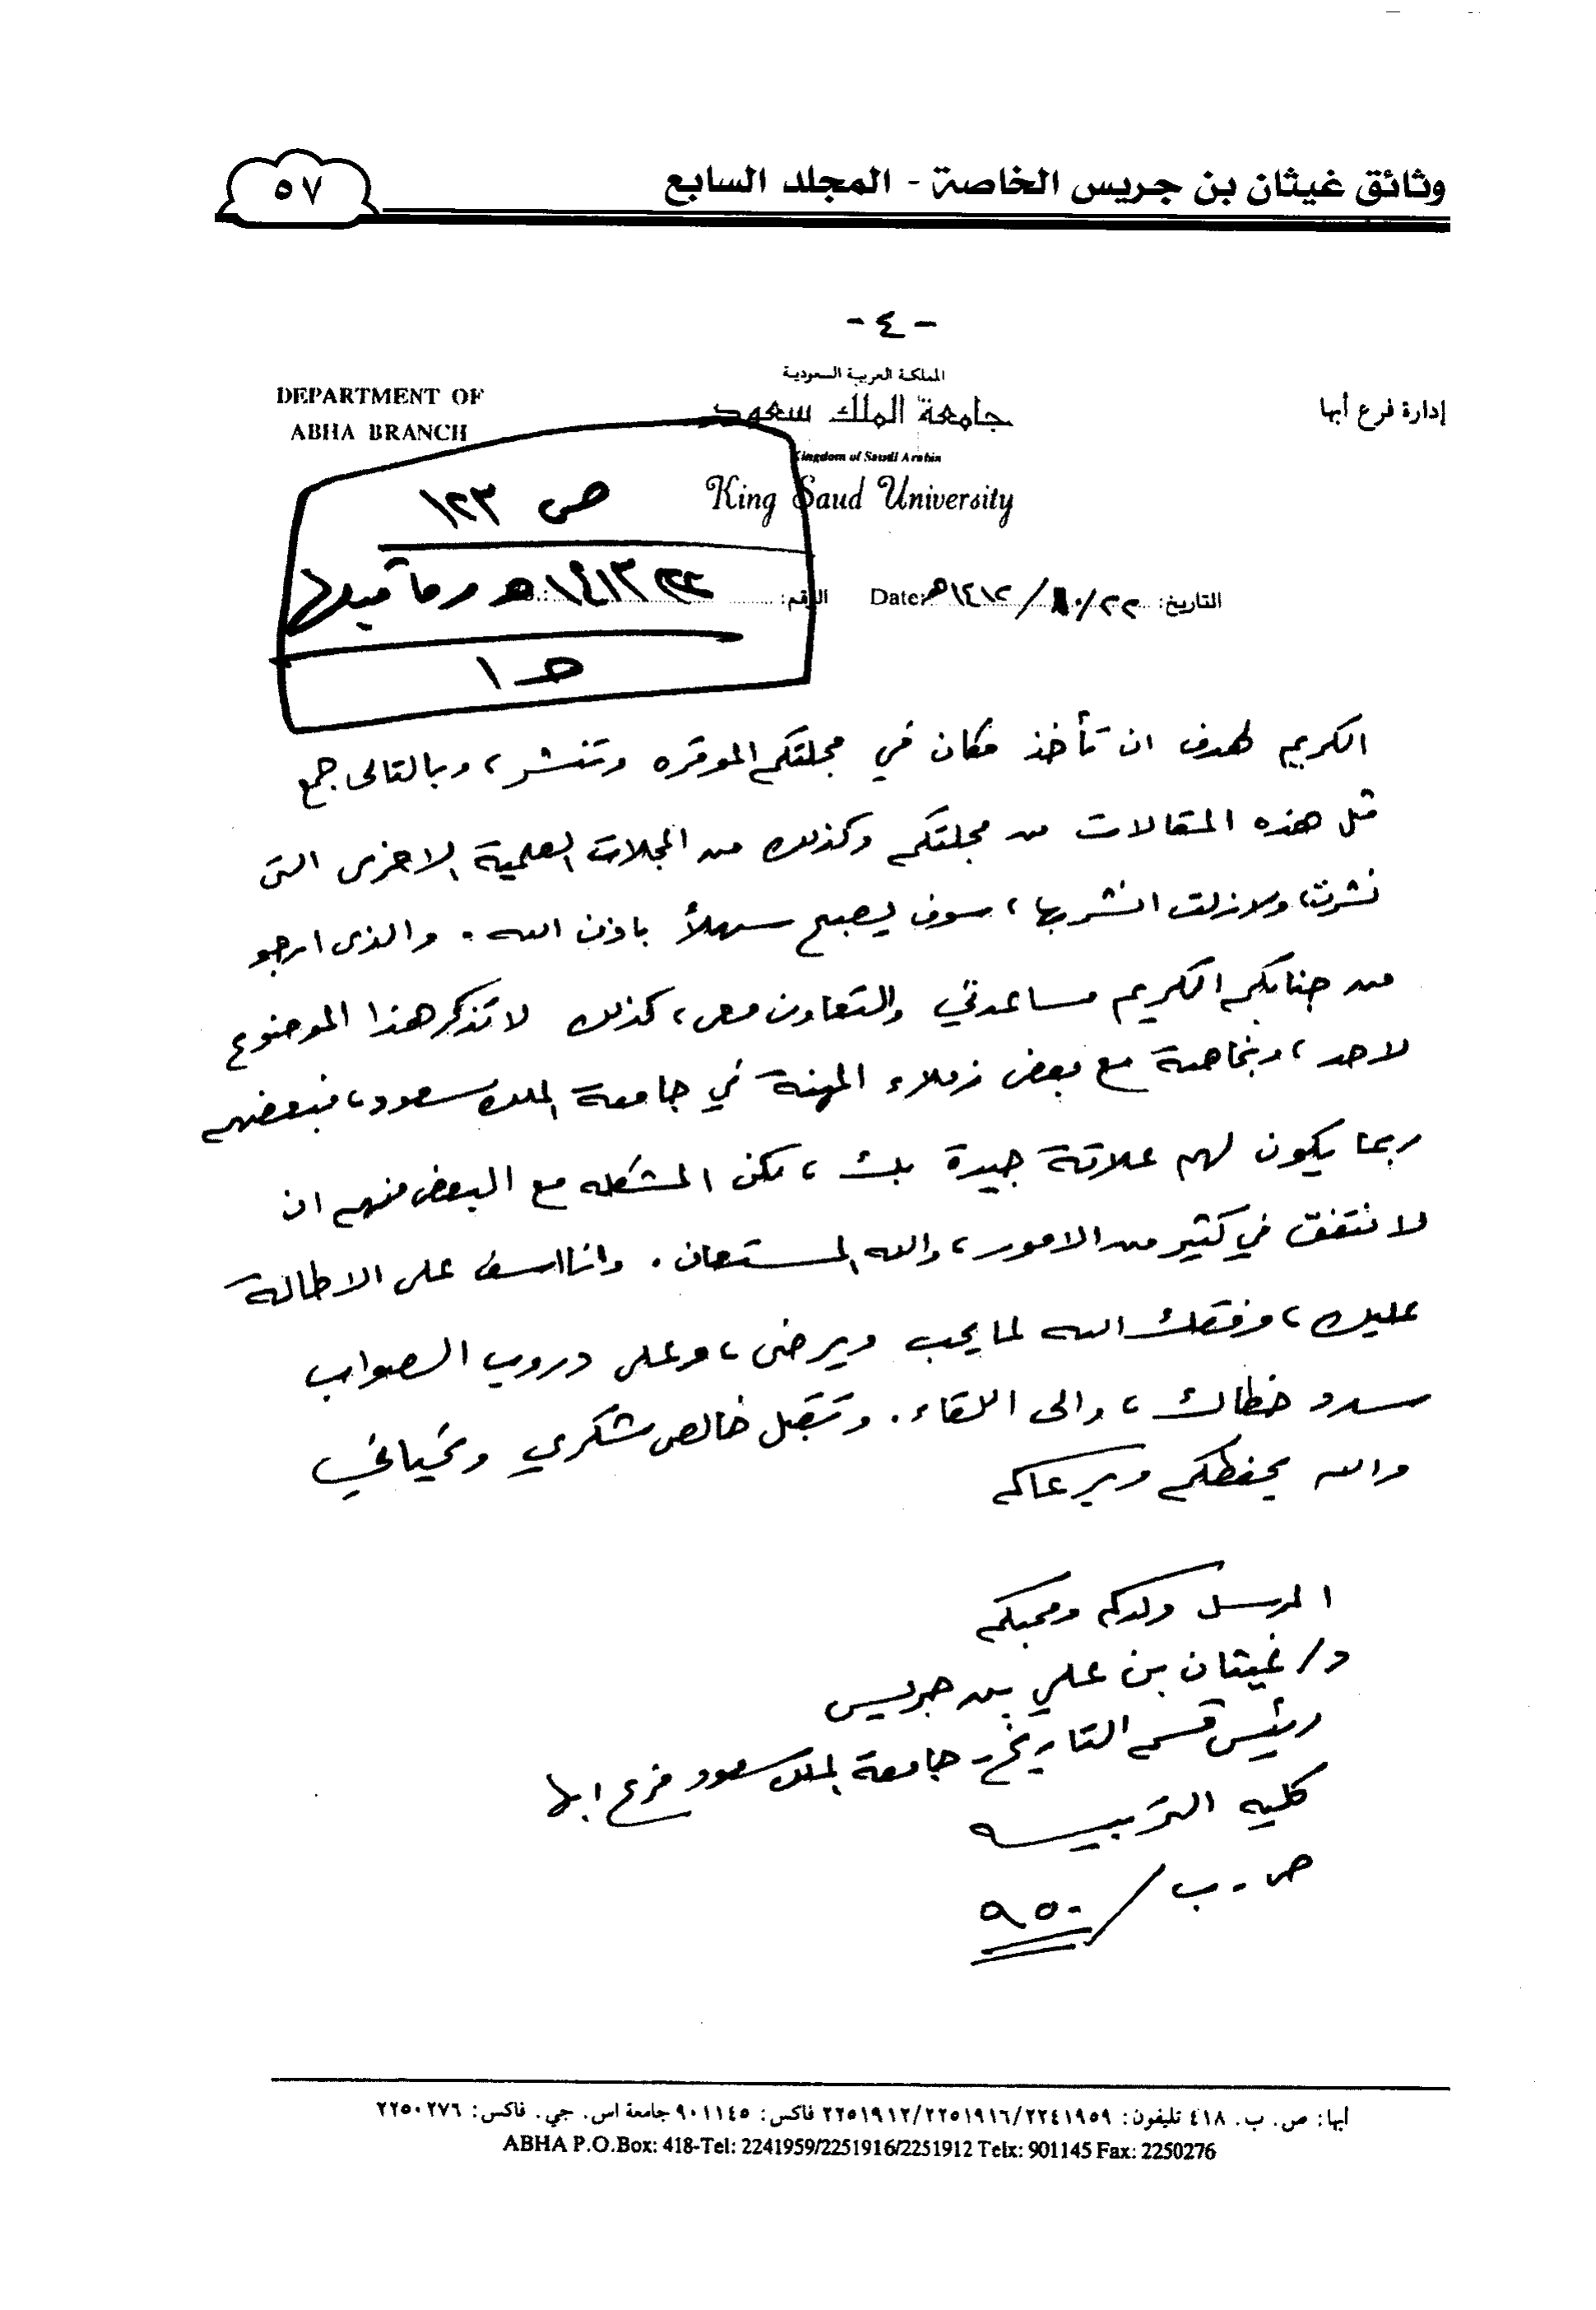 وثائق غيثان بن جريس الخاصة - المجلد السابع
٥٧
- ٤ -
المملكة العربية السعودية
DEPARTMENT OF
ABHA BRANCH
جامعة الملك سعود
إدارة فرع أبها
Kingdom of Saudi Arabia
King Saud University
ص ١٢٣
التاريخ: ٢٢/١٠/١٤١٢هـ Date:
الرقم:
١٤١٣هـ وما قبلها
هـ ١
الكريم لهدف ان تأخذ مكان في مجلتكم الموقره وتنشر، وبالتالى جمع
مثل هذه المقالات من مجلتكم وكذلك من المجلات العلمية الاخرى التى
نشرت، ولازلت انشر بها، سوف يصبح سهلاً باذن الله. والذى ارجو
من جنابكم الكريم مساعدتي والتعاون معى، كذلك لا تذكر هذا الموضوع
لاحد، وبخاصة مع بعض زملاء المهنة في جامعة الملك سعود، فبعضهم
ربما يكون لهم علاقة جيدة بك، لكن المشكله مع البعض منهم ان
لا نتفق في كثير من الامور، والله المستعان. وانا اسف على الاطالة
عليك، وفقك الله لما يحب ويرضى، وعلى دروب الصواب
سدد خطاك، والى اللقاء. وتقبل خالص شكري وتحياتي
والله يحفظكم ويرعاكم
المرسل ولدكم ومحبكم
د/ غيثان بن علي بن جريس
رئيس قسم التاريخ - جامعة الملك سعود فرع ابها
كليه التربيه
ص . ب / ٩٥٠
أبها: ص. ب. ٤١٨ تليفون: ٢٢٤١٩٥٩/٢٢٥١٩١٦/٢٢٥١٩١٢ فاكس: ٩٠١١٤٥ جامعة اس. جي. فاكس: ٢٢٥٠٢٧٦
ABHA P.O.Box: 418-Tel: 2241959/2251916/2251912 Telx: 901145 Fax: 2250276